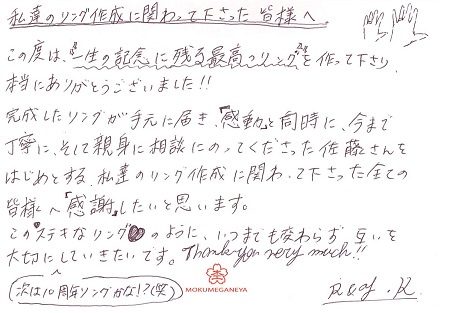 私達のリング作成に関わって下さった皆様へ
この度は、"一生の記念に残る最高のリング"を作って下さり
本当にありがとうございました!!
完成したリングが手元に届き、「感動」と同時に、今まで
丁寧に、そして親身に相談にのってくださった佐藤さんを
はじめとする、私達のリング作成に関わって下さった全ての
皆様へ「感謝」したいと思います。
この"ステキなリング"のように、いつまでも変わらず互いを
大切にしていきたいです。Thank you very much!!
(次は10周年リングかな!?(笑))
MOKUMEGANEYA